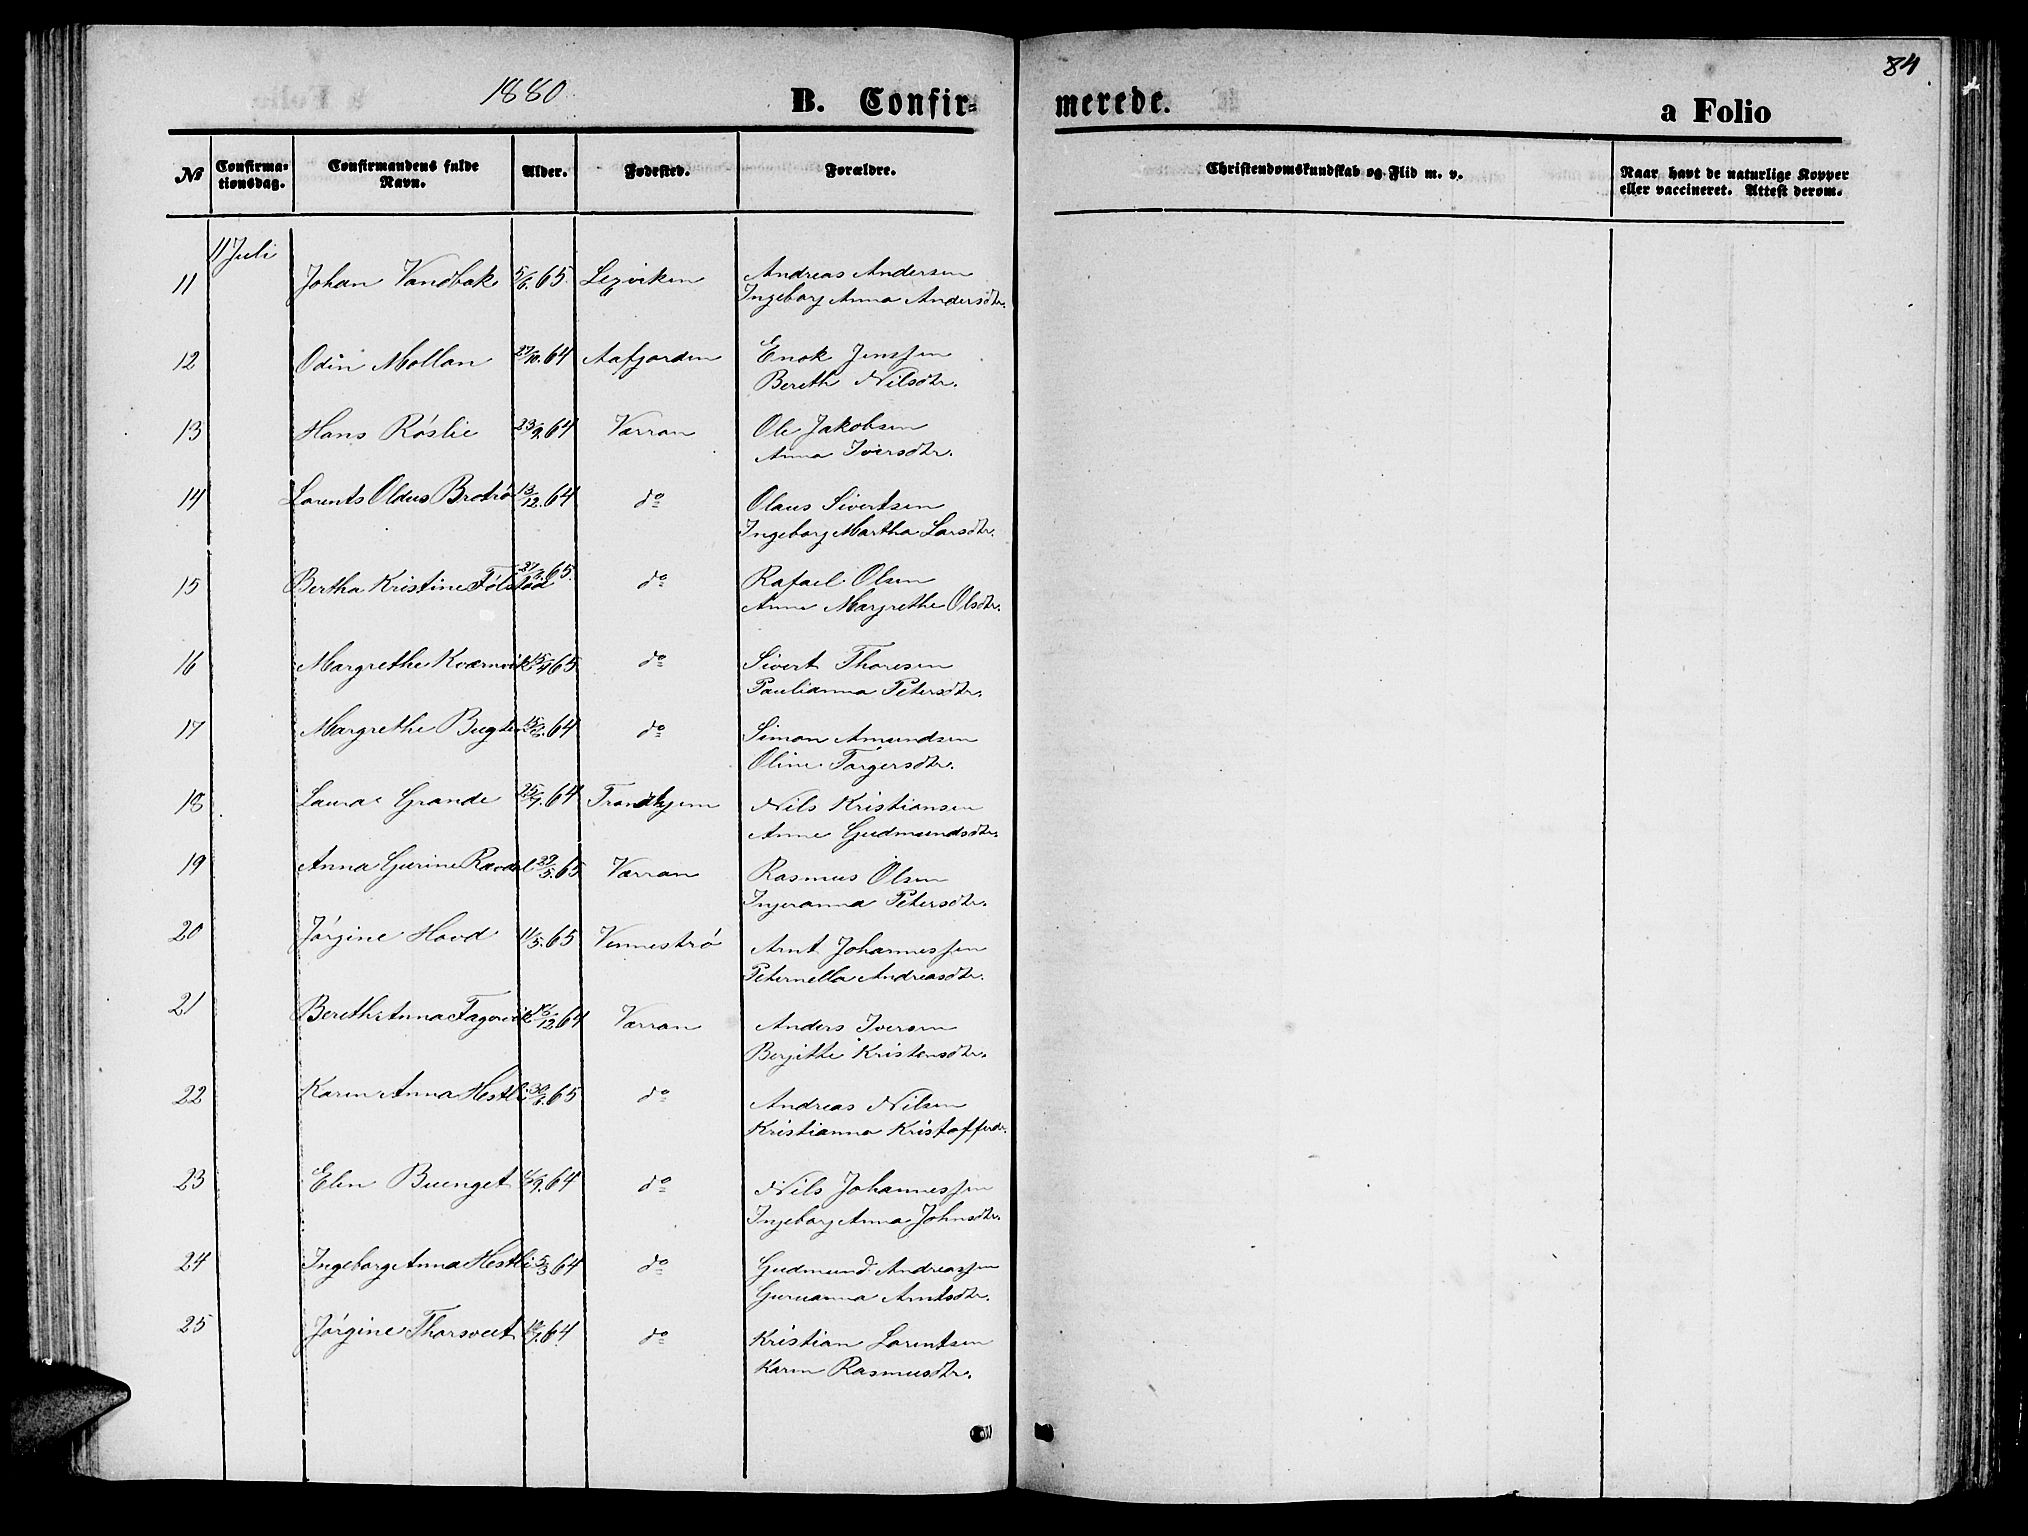 84
1880 B. Confir- merede. a Folio
№ Confirma-tionsdag. Confirmandens fulde Navn. Alder. Fødested. Forældre. Christendomskundskab og Flid m. v. Naar havt de naturlige Kopper eller vaccineret. Attest derom.
11 Juli
11 Johan Vandbak 5/6.65. Lexviken Andreas Andersen
Ingeborg Anna Andersdtr.
12 Odin Mollan 27/10.64 Aafjorden Enok Jenssen
Bereth Nilsdtr.
13 Hans Røslie 23/9.64 Værran Ole Jakobsen
Anna Iversdtr.
14 Lorents Oldus Brotrø 13/12.64 do Olaus Sivertsen
Ingeborg Martha Larsdtr.
15 Bertha Kristine Følstad 65. do Rafael Olsen
Anne Margrethe Olsdtr.
16 Margrethe Kværnvik 65 do Sivert Thoresen
Paulianna Petersdtr.
17 Margrethe Bugten 64 do Simon Amundsen
Oline Torgersdtr.
18 Laura Grande 25/7.64 Trondhjem Nils Kristiansen
Anne Gudmundsdtr.
19 Anna Gurine Ravdal 29/5.65 Værran Rasmus Olsen
Ingeranna Petersdtr.
20 Jørgine Hovd 11/5.65 Vennestrø Arnt Johannessen
Peternella Andreasdtr.
21 Bereth Anna Fagervik 16/12.64 Værran Anders Iversen
Bergitte Kristensdtr.
22 Karen Anna Hestli 30/6.65 do Andreas Nilsen
Kristianna Kristofferdr.
23 Elen Buenget 64 do Nils Johannessen
Ingeborg Anna Johnsdtr.
24 Ingeborg Anna Hestli 5/3 64 do Gudmund Andreassen
Guruanna Arntsdtr.
25 Jørgine Thorsveet 64 do Kristian Lorentsen
Karen Rasmusdtr.